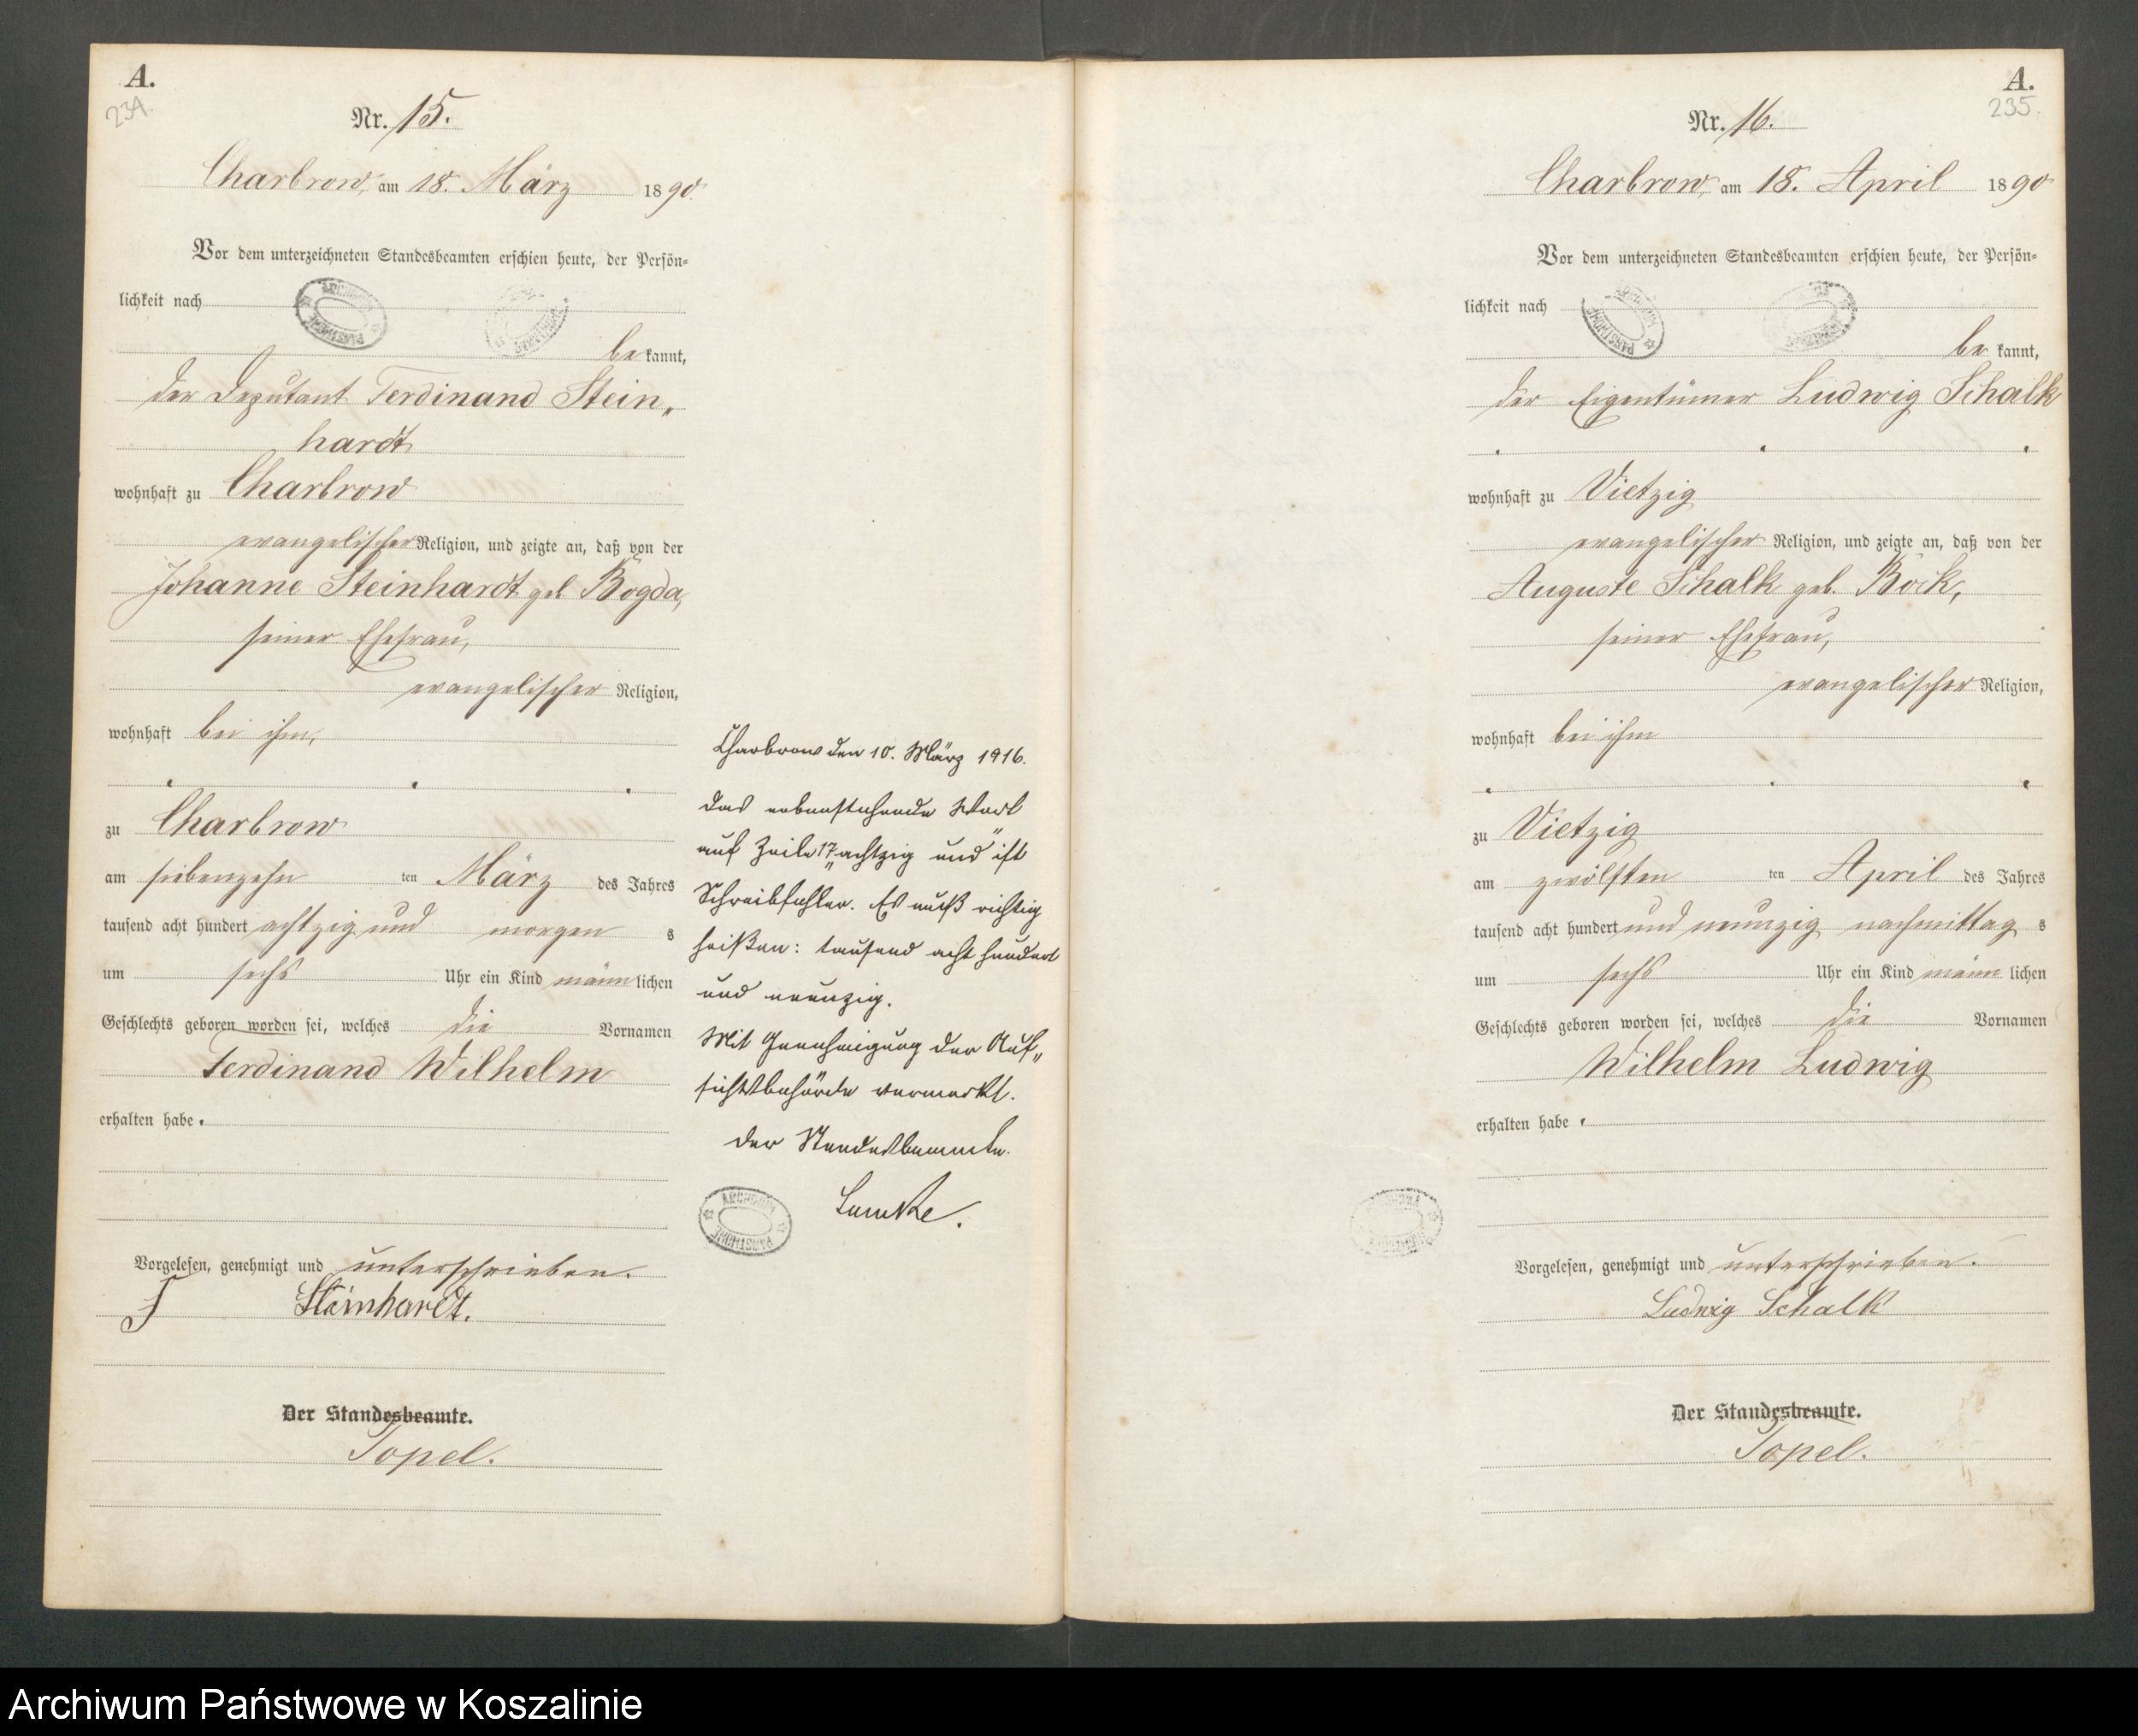 A.
234.
Nr. 15.
Charbrow, am 18. März 1890.
Vor dem unterzeichneten Standesbeamten erschien heute, der Persön=
lichkeit nach
be kannt,
der Deputant Ferdinand Stein„
hardt
wohnhaft zu Charbrow
evangelischer Religion, und zeigte an, daß von der
Johanne Steinhardt geb Bogda,
seiner Ehefrau,
evangelischer Religion,
wohnhaft bei ihm,
zu Charbrow
am siebenzehn ten März des Jahres
tausend acht hundert achtzig und morgen s
um sechs Uhr ein Kind männ lichen
Geschlechts geboren worden sei, welches die Vornamen
Ferdinand Wilhelm
erhalten habe.
Vorgelesen, genehmigt und unterschrieben.
F Steinhardt.
Der Standesbeamte.
Topel.
Charbrow den 10. März 1916.
Das nebenstehende Wort
auf Zeile 17 „achtzig und" ist
Schreibfehler. Es muß richtig
heißen: tausend acht hundert
und neunzig.
Mit Genehmigung der Auf„
sichtsbehörde vermerkt.
Der Standesbeamte.
ARCHIWUM PAŃSTWOWE
A.
235.
Nr. 16.
Charbrow, am 18. April 1890
Vor dem unterzeichneten Standesbeamten erschien heute, der Persön=
lichkeit nach
be kannt,
der Eigentümer Ludwig Schalk
wohnhaft zu Vietzig
evangelischer Religion, und zeigte an, daß von der
Auguste Schalk geb. Bock,
seiner Ehefrau,
evangelischer Religion,
wohnhaft bei ihm
zu Vietzig
am zwölften ten April des Jahres
tausend acht hundert und neunzig nachmittag s
um sechs Uhr ein Kind männ lichen
Geschlechts geboren worden sei, welches die Vornamen
Wilhelm Ludwig
erhalten habe.
Vorgelesen, genehmigt und unterschrieben.
Ludwig Schalk
Der Standesbeamte.
Topel.
Archiwum Państwowe w Koszalinie